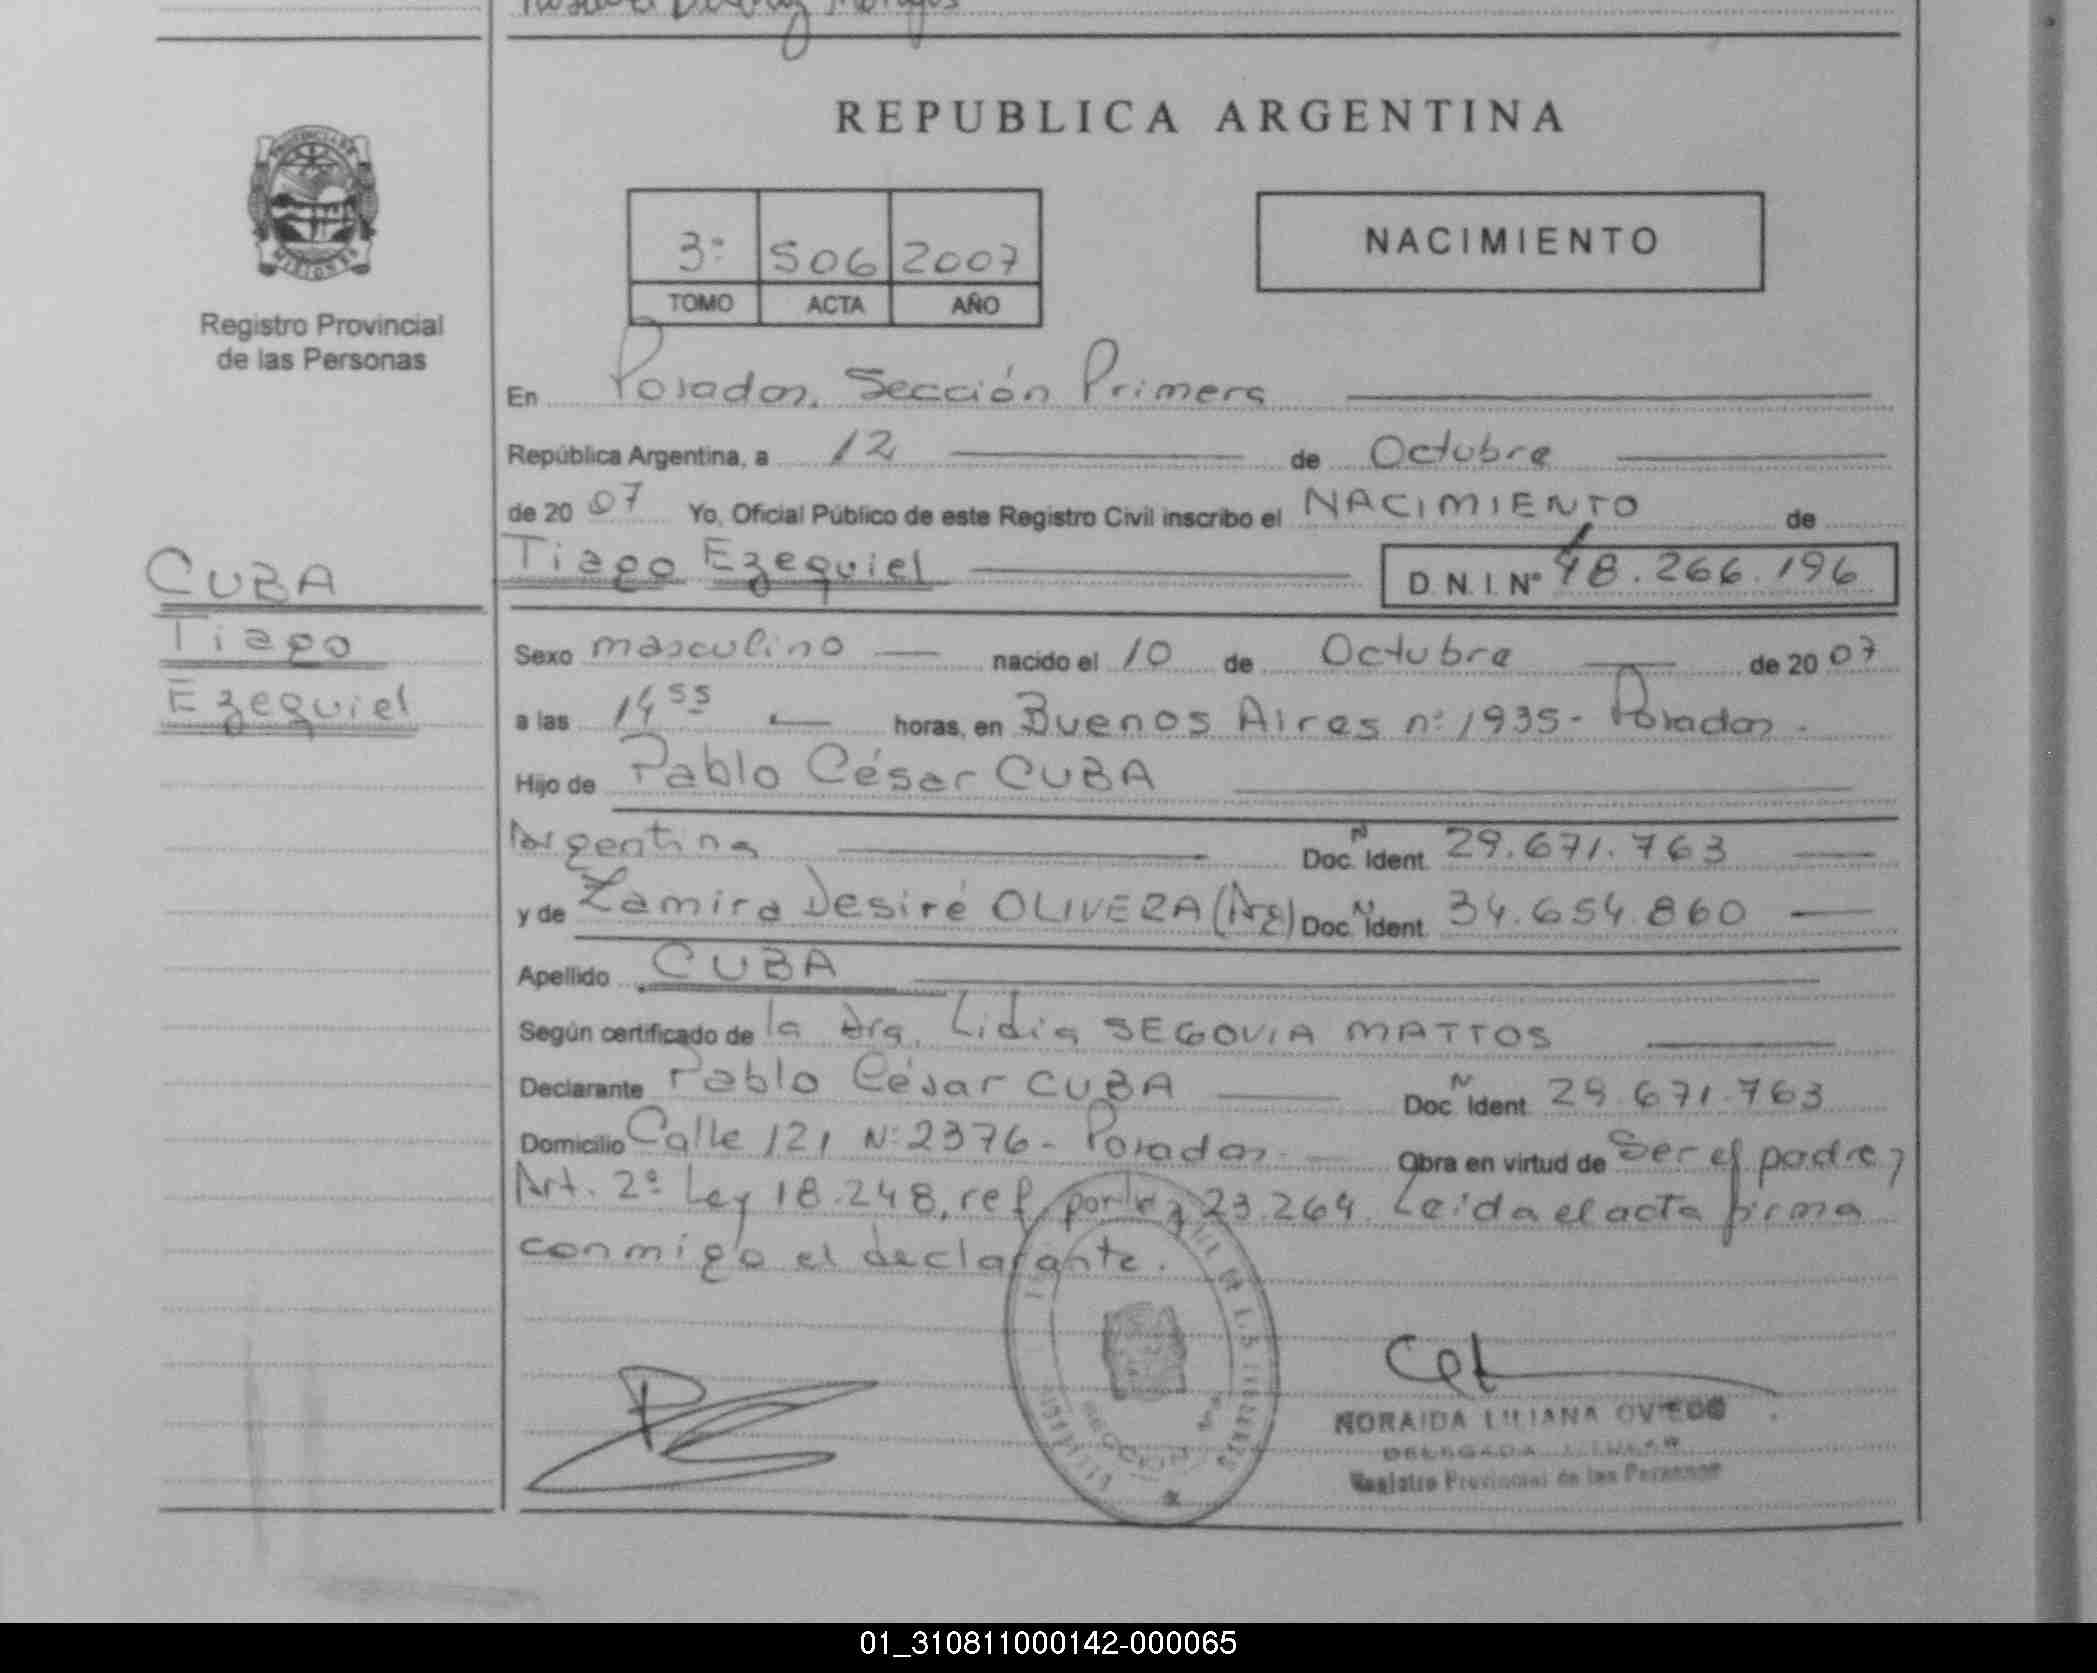 REPUBLICA ARGENTINA
PROVINCIA DE
MISIONES
Registro Provincial
de las Personas
3º 506 2007
TOMO ACTA AÑO
NACIMIENTO
En Posadas, Sección Primera
República Argentina, a 12 de Octubre
de 20 07 Yo, Oficial Público de este Registro Civil inscribo el NACIMIENTO de
Tiago Ezequiel D.N.I. Nº 48.266.196
CUBA
Tiago
Ezequiel
Sexo masculino nacido el 10 de Octubre de 20 07
a las 14 55 horas, en Buenos Aires nº 1935 - Posadas.
Hijo de Pablo César CUBA
Argentina Doc. N Ident. 29.671.763
y de Zamira Desiré OLIVERA (Arg) Doc. N Ident. 34.654.860
Apellido CUBA
Según certificado de la Dra. Lidia SEGOVIA MATTOS
Declarante Pablo César CUBA Doc. N Ident. 29.671.763
Domicilio Calle 121 Nº 2376 - Posadas - Obra en virtud de Ser el padre y
Art. 2º Ley 18.248, ref por ley 23.264. Leída el acta firma
conmigo el declarante.
SECCION
NORAIDA LILIANA OVIEDO
DELEGADA TITULAR
Registro Provincial de las Personas
01_310811000142-000065